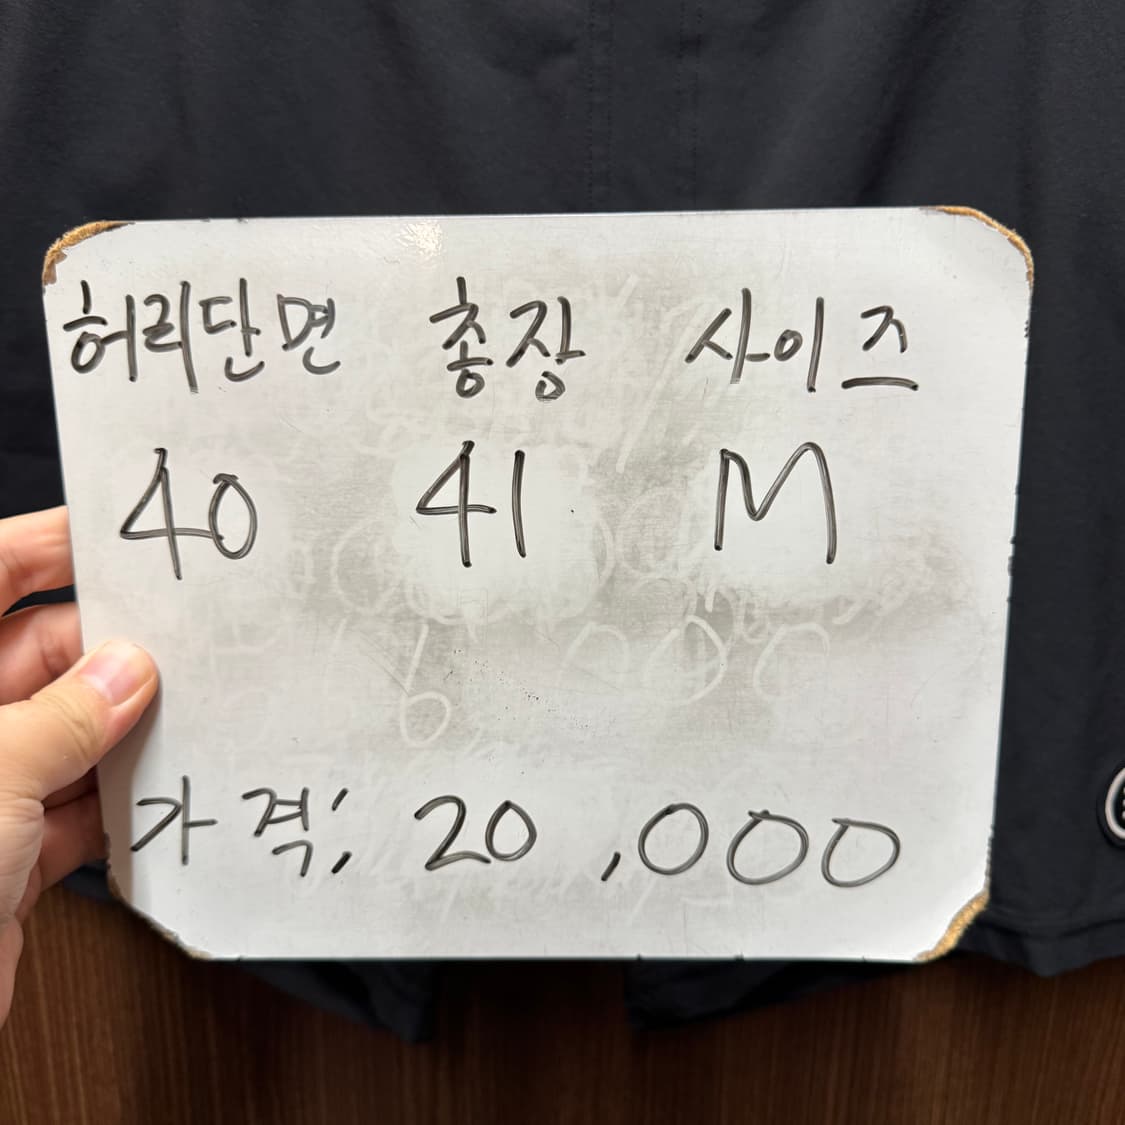 허리단면 총장 사이즈
40 41 M
가격; 20,000